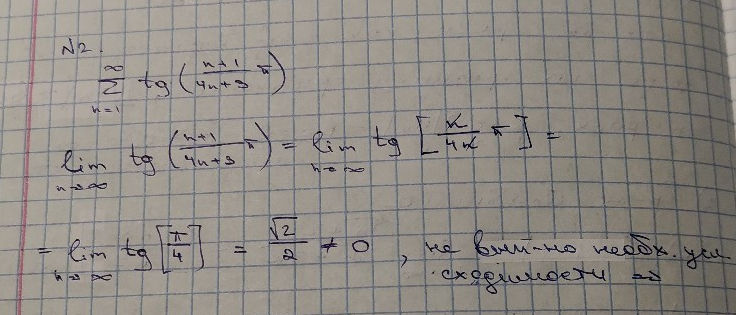 №2.
∞
Σ tg ( n+1 / 4n+3 π )
n=1
lim tg ( n+1 / 4n+3 π ) = lim tg [ n / 4n π ] =
n→∞ n→∞
= lim tg [ π / 4 ] = √2 / 2 ≠ 0 , не вып-но необх. усл.
n→∞ сходимости ⇒